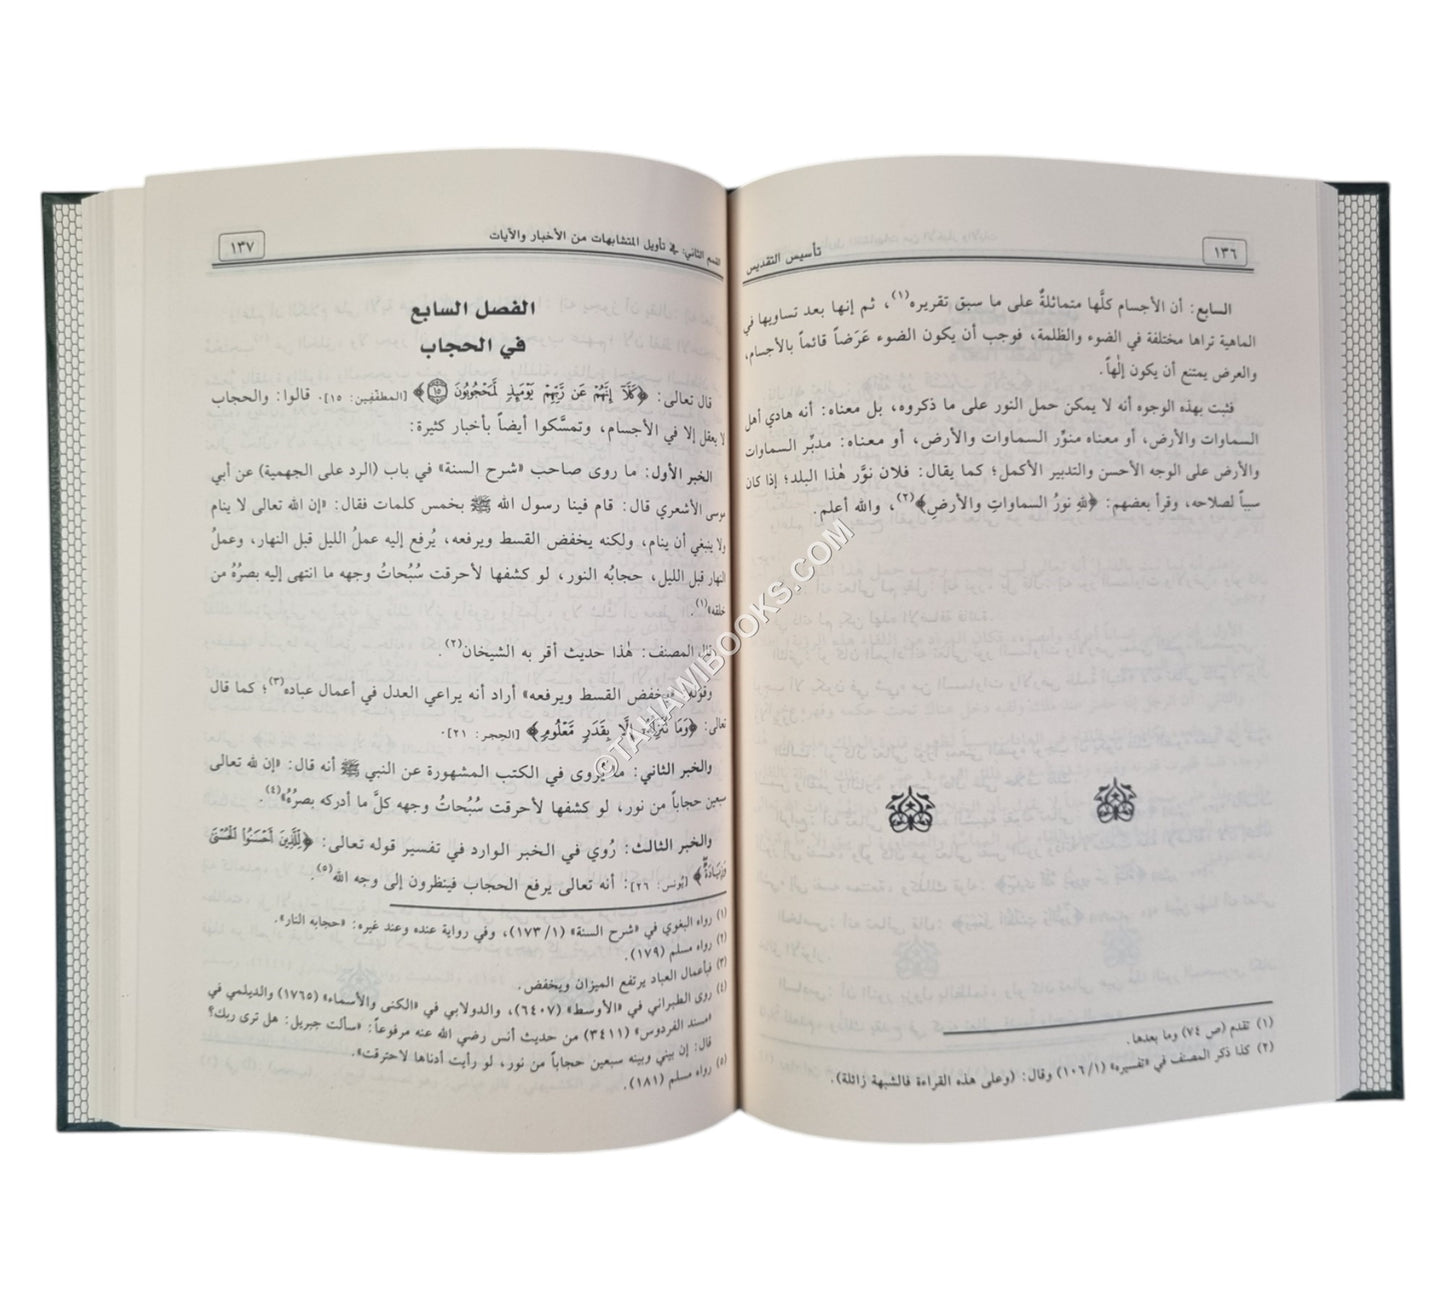 ١٣٦
تأسيس التقديس
السابع: أن الأجسام كلَّها متماثلةٌ على ما سبق تقريره(١)، ثم إنها بعد تساويها في
الماهية تراها مختلفة في الضوء والظلمة، فوجب أن يكون الضوء عَرَضاً قائماً بالأجسام،
والعرض يمتنع أن يكون إلٰهاً.
فثبت بهذه الوجوه أنه لا يمكن حمل النور على ما ذكروه، بل معناه: أنه هادي أهل
السماوات والأرض، أو معناه منوِّر السماوات والأرض، أو معناه: مدبِّر السماوات
والأرض على الوجه الأحسن والتدبير الأكمل؛ كما يقال: فلان نوَّر هٰذا البلد؛ إذا كان
سبباً لصلاحه، وقرأ بعضهم: ﴿للهِ نورُ السماواتِ والأرضِ﴾(٢)، والله أعلم.
(١) تقدم (ص ٧٤) وما بعدها.
(٢) كذا ذكر المصنف في «تفسيره» (١٠٦/١) وقال: (وعلى هذه القراءة فالشبهة زائلة).
القسم الثاني: في تأويل المتشابهات من الأخبار والآيات
١٣٧
الفصل السابع
في الحجاب
قال تعالى: ﴿كَلَّا إِنَّهُمْ عَن رَّبِّهِمْ يَوْمَئِذٍ لَّمَحْجُوبُونَ ۝١٥﴾ [المطففين: ١٥]. قالوا: والحجاب
لا يعقل إلا في الأجسام، وتمسَّكوا أيضاً بأخبار كثيرة:
الخبر الأول: ما روى صاحب «شرح السنة» في باب (الرد على الجهمية) عن أبي
موسى الأشعري قال: قام فينا رسول الله ﷺ بخمس كلمات فقال: «إن الله تعالى لا ينام
ولا ينبغي أن ينام، ولكنه يخفض القسط ويرفعه، يُرفع إليه عملُ الليل قبل النهار، وعملُ
النهار قبل الليل، حجابُه النور، لو كشفها لأحرقت سُبُحاتُ وجهه ما انتهى إليه بصرُهُ من
خلقه»(١).
قال المصنف: هٰذا حديث أقر به الشيخان(٢).
وقوله: «يخفض القسط ويرفعه» أراد أنه يراعي العدل في أعمال عباده(٣)؛ كما قال
تعالى: ﴿وَمَا نُنَزِّلُهُ إِلَّا بِقَدَرٍ مَّعْلُومٍ﴾ [الحجر: ٢١].
والخبر الثاني: ما يُروى في الكتب المشهورة عن النبي ﷺ أنه قال: «إن لله تعالى
سبعين حجاباً من نور، لو كشفها لأحرقت سُبُحاتُ وجهه كلَّ ما أدركه بصرُهُ»(٤).
والخبر الثالث: رُوي في الخبر الوارد في تفسير قوله تعالى: ﴿لِلَّذِينَ أَحْسَنُوا الْحُسْنَىٰ
وَزِيَادَةٌ﴾ [يُونس: ٢٦]: أنه تعالى يرفع الحجاب فينظرون إلى وجه الله(٥).
(١) رواه البغوي في «شرح السنة» (١٧٣/١)، وفي رواية عنده وعند غيره: «حجابه النار».
(٢) رواه مسلم (١٧٩).
(٣) فبأعمال العباد يرتفع الميزان وينخفض.
(٤) روى الطبراني في «الأوسط» (٦٤٠٧)، والدولابي في «الكنى والأسماء» (١٧٦٥) والديلمي في
«مسند الفردوس» (٣٤١١) من حديث أنس رضي الله عنه مرفوعاً: «سألت جبريل: هل ترى ربك؟
قال: إن بيني وبينه سبعين حجاباً من نور، لو رأيت أدناها لاحترقت».
(٥) رواه مسلم (١٨١).
©TAHAWIBOOKS.COM